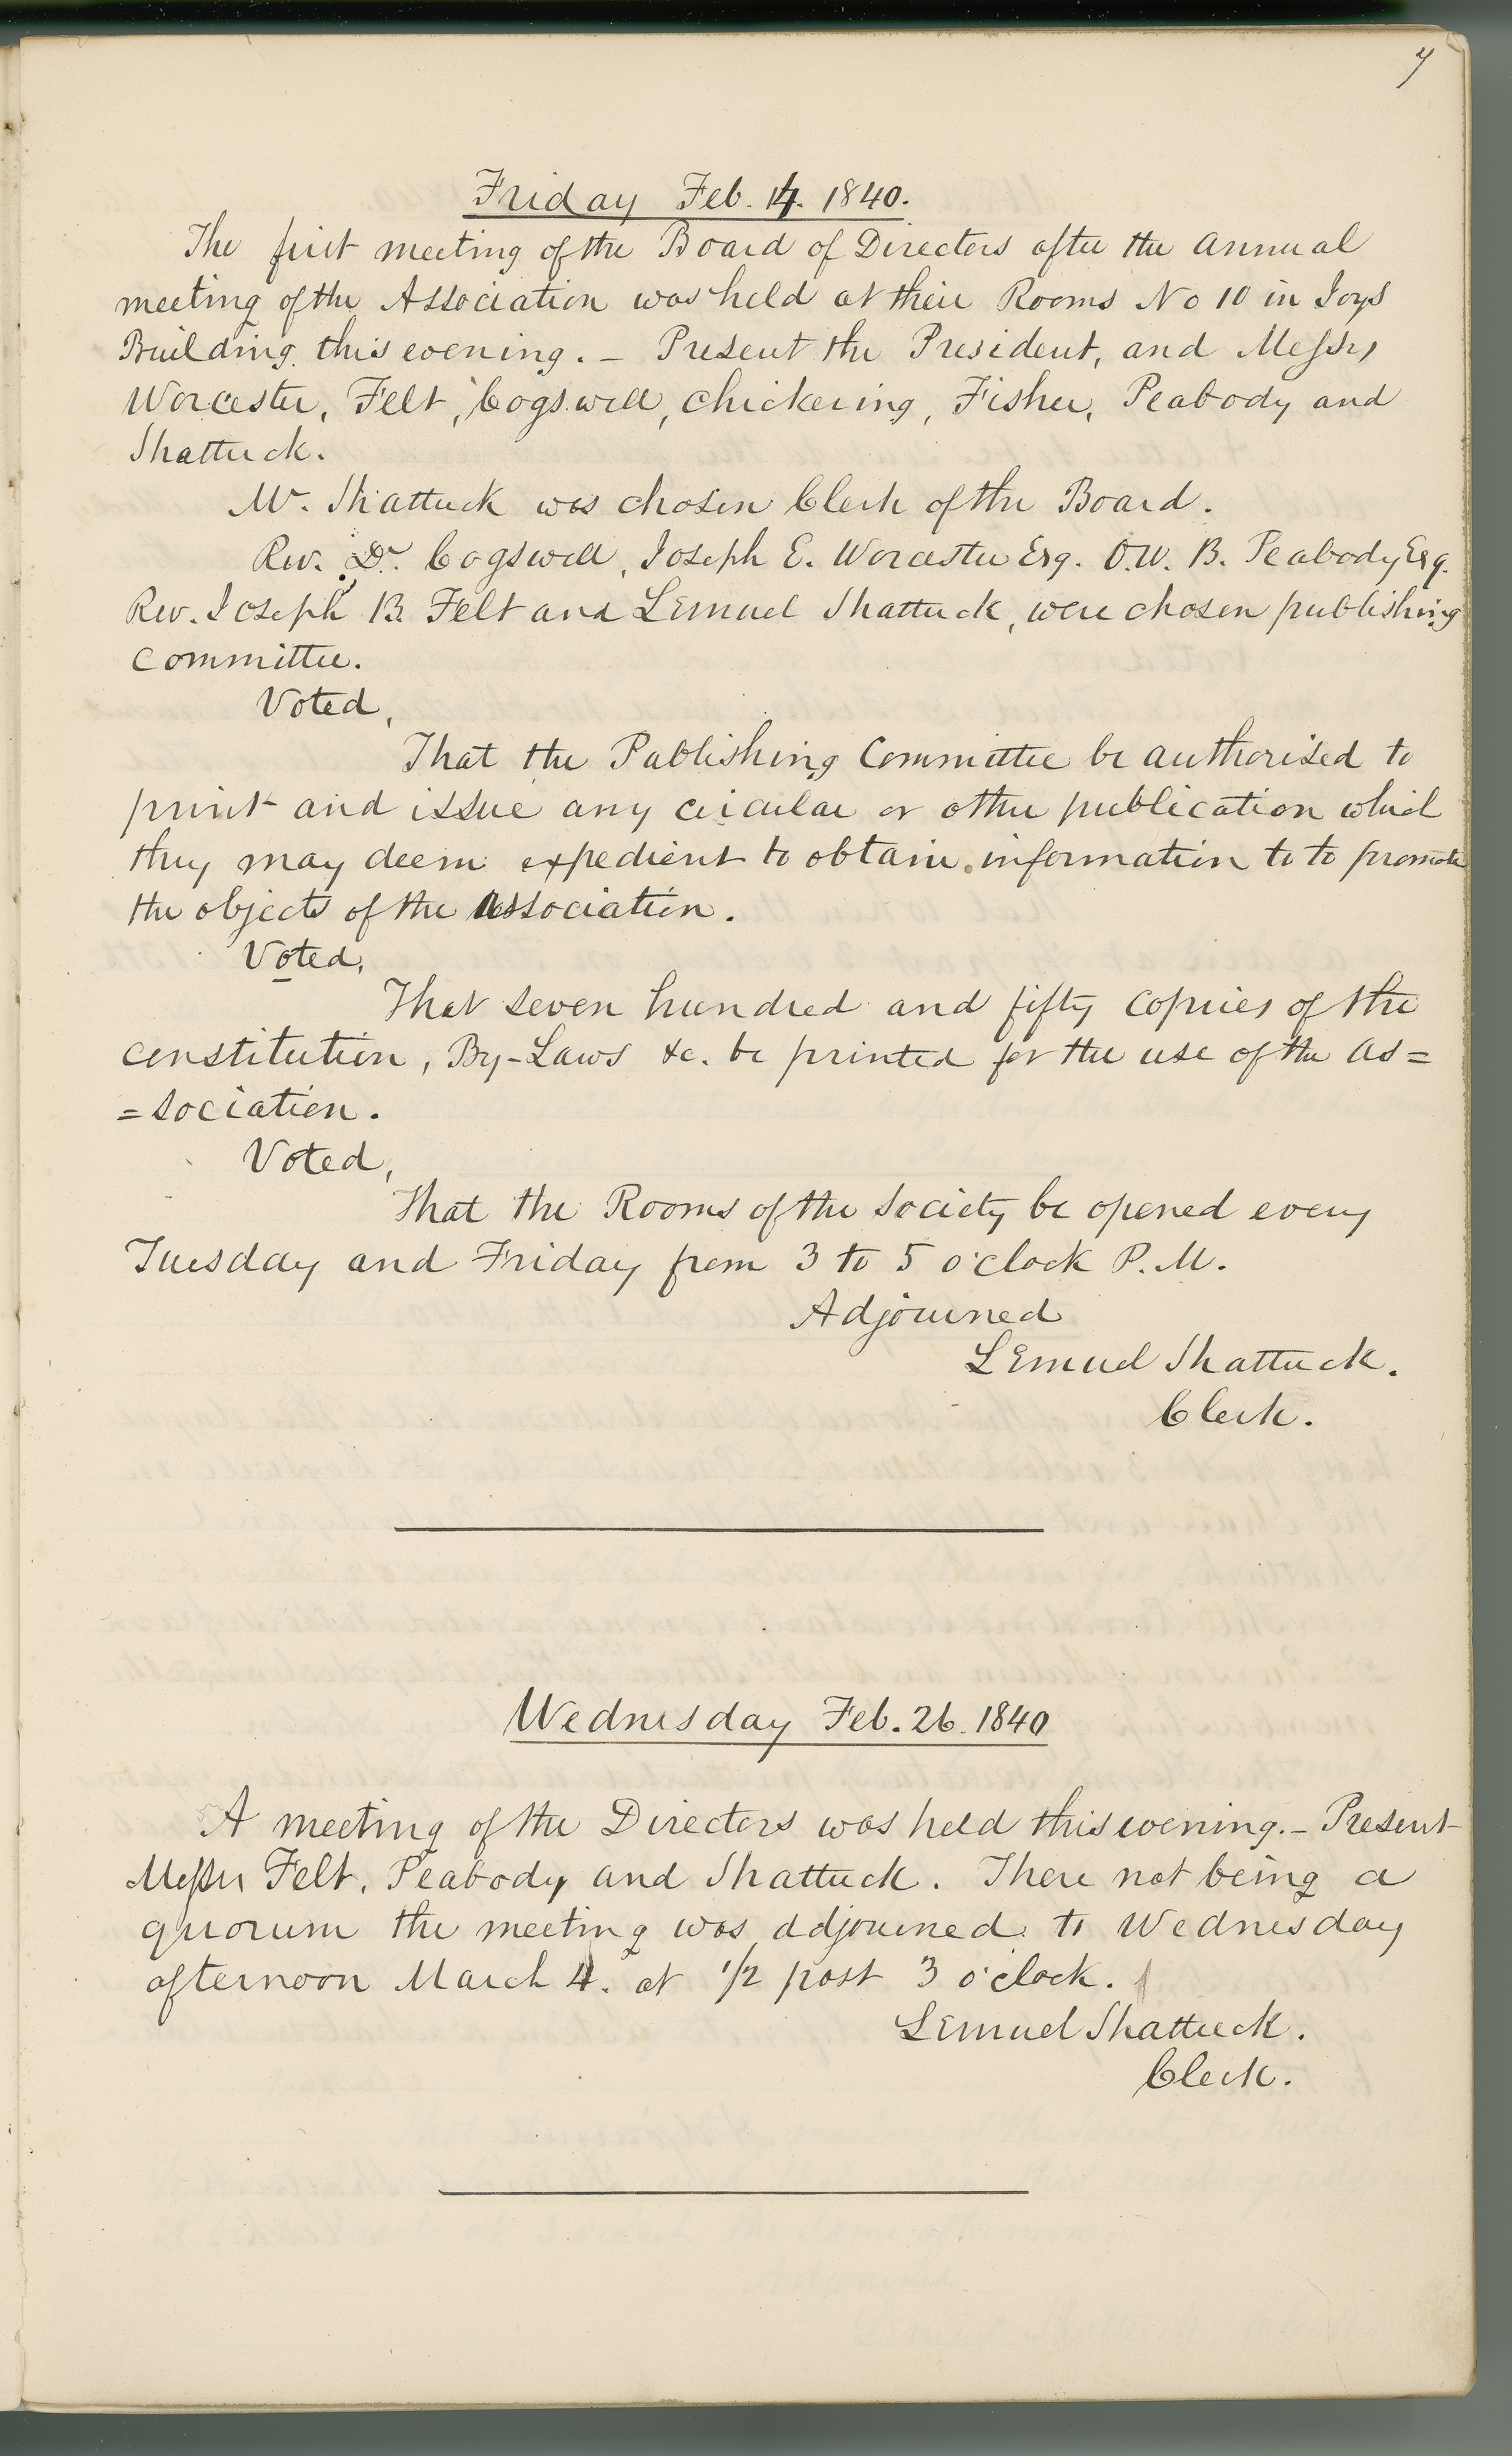 7
Friday Feb. 14. 1840.
The first meeting of the Board of Directors after the annual
meeting of the Association was held at their Rooms No 10 in Joys
Building this evening. – Present the President, and Messrs
Worcester, Felt, Cogswell, Chickering, Fisher, Peabody and
Shattuck.
Mr. Shattuck was chosen Clerk of the Board.
Rev. Dr. Cogswell, Joseph E. Worcester Esq. O.W. B. Peabody Esq.
Rev. Joseph B. Felt and Lemuel Shattuck, were chosen publishing
Committee.
Voted,
That the Publishing Committee be authorised to
print and issue any circular or other publication which
they may deem expedient to obtain information to to promote
the objects of the Association.
Voted,
That seven hundred and fifty copies of the
constitution, By-Laws &c. be printed for the use of the as=
=sociation.
Voted,
That the Rooms of the Society be opened every
Tuesday and Friday from 3 to 5 o'clock P.M.
Adjourned
Lemuel Shattuck.
Clerk.
Wednesday Feb. 26. 1840
A meeting of the Directors was held this evening. – Present
Messrs Felt, Peabody and Shattuck. There not being a
quorum the meeting was adjourned to Wednesday
afternoon March 4. at 1/2 past 3 o'clock.
Lemuel Shattuck.
Clerk.